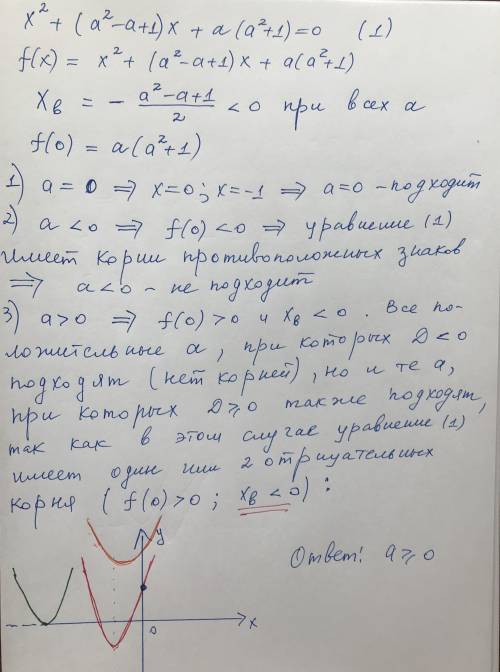 x² + (a²-a+1)x + a(a²+1)=0 (1)
f(x) = x² + (a²-a+1)x + a(a²+1)
x_в = - (a²-a+1)/2 < 0 при всех a
f(0) = a(a²+1)
1) a = 0 ⇒ x=0; x=-1 ⇒ a=0 - подходит
2) a<0 ⇒ f(0)<0 ⇒ уравнение (1)
имеет корни противоположных знаков
⇒ a<0 - не подходит
3) a>0 ⇒ f(0)>0 и x_в < 0. Все по-
ложительные a, при которых D<0
подходят (нет корней), но и те a,
при которых D≥0 также подходят,
так как в этом случае уравнение (1)
имеет один или 2 отрицательных
корня (f(0)>0; x_в<0):
y
Ответ: a≥0
0
x